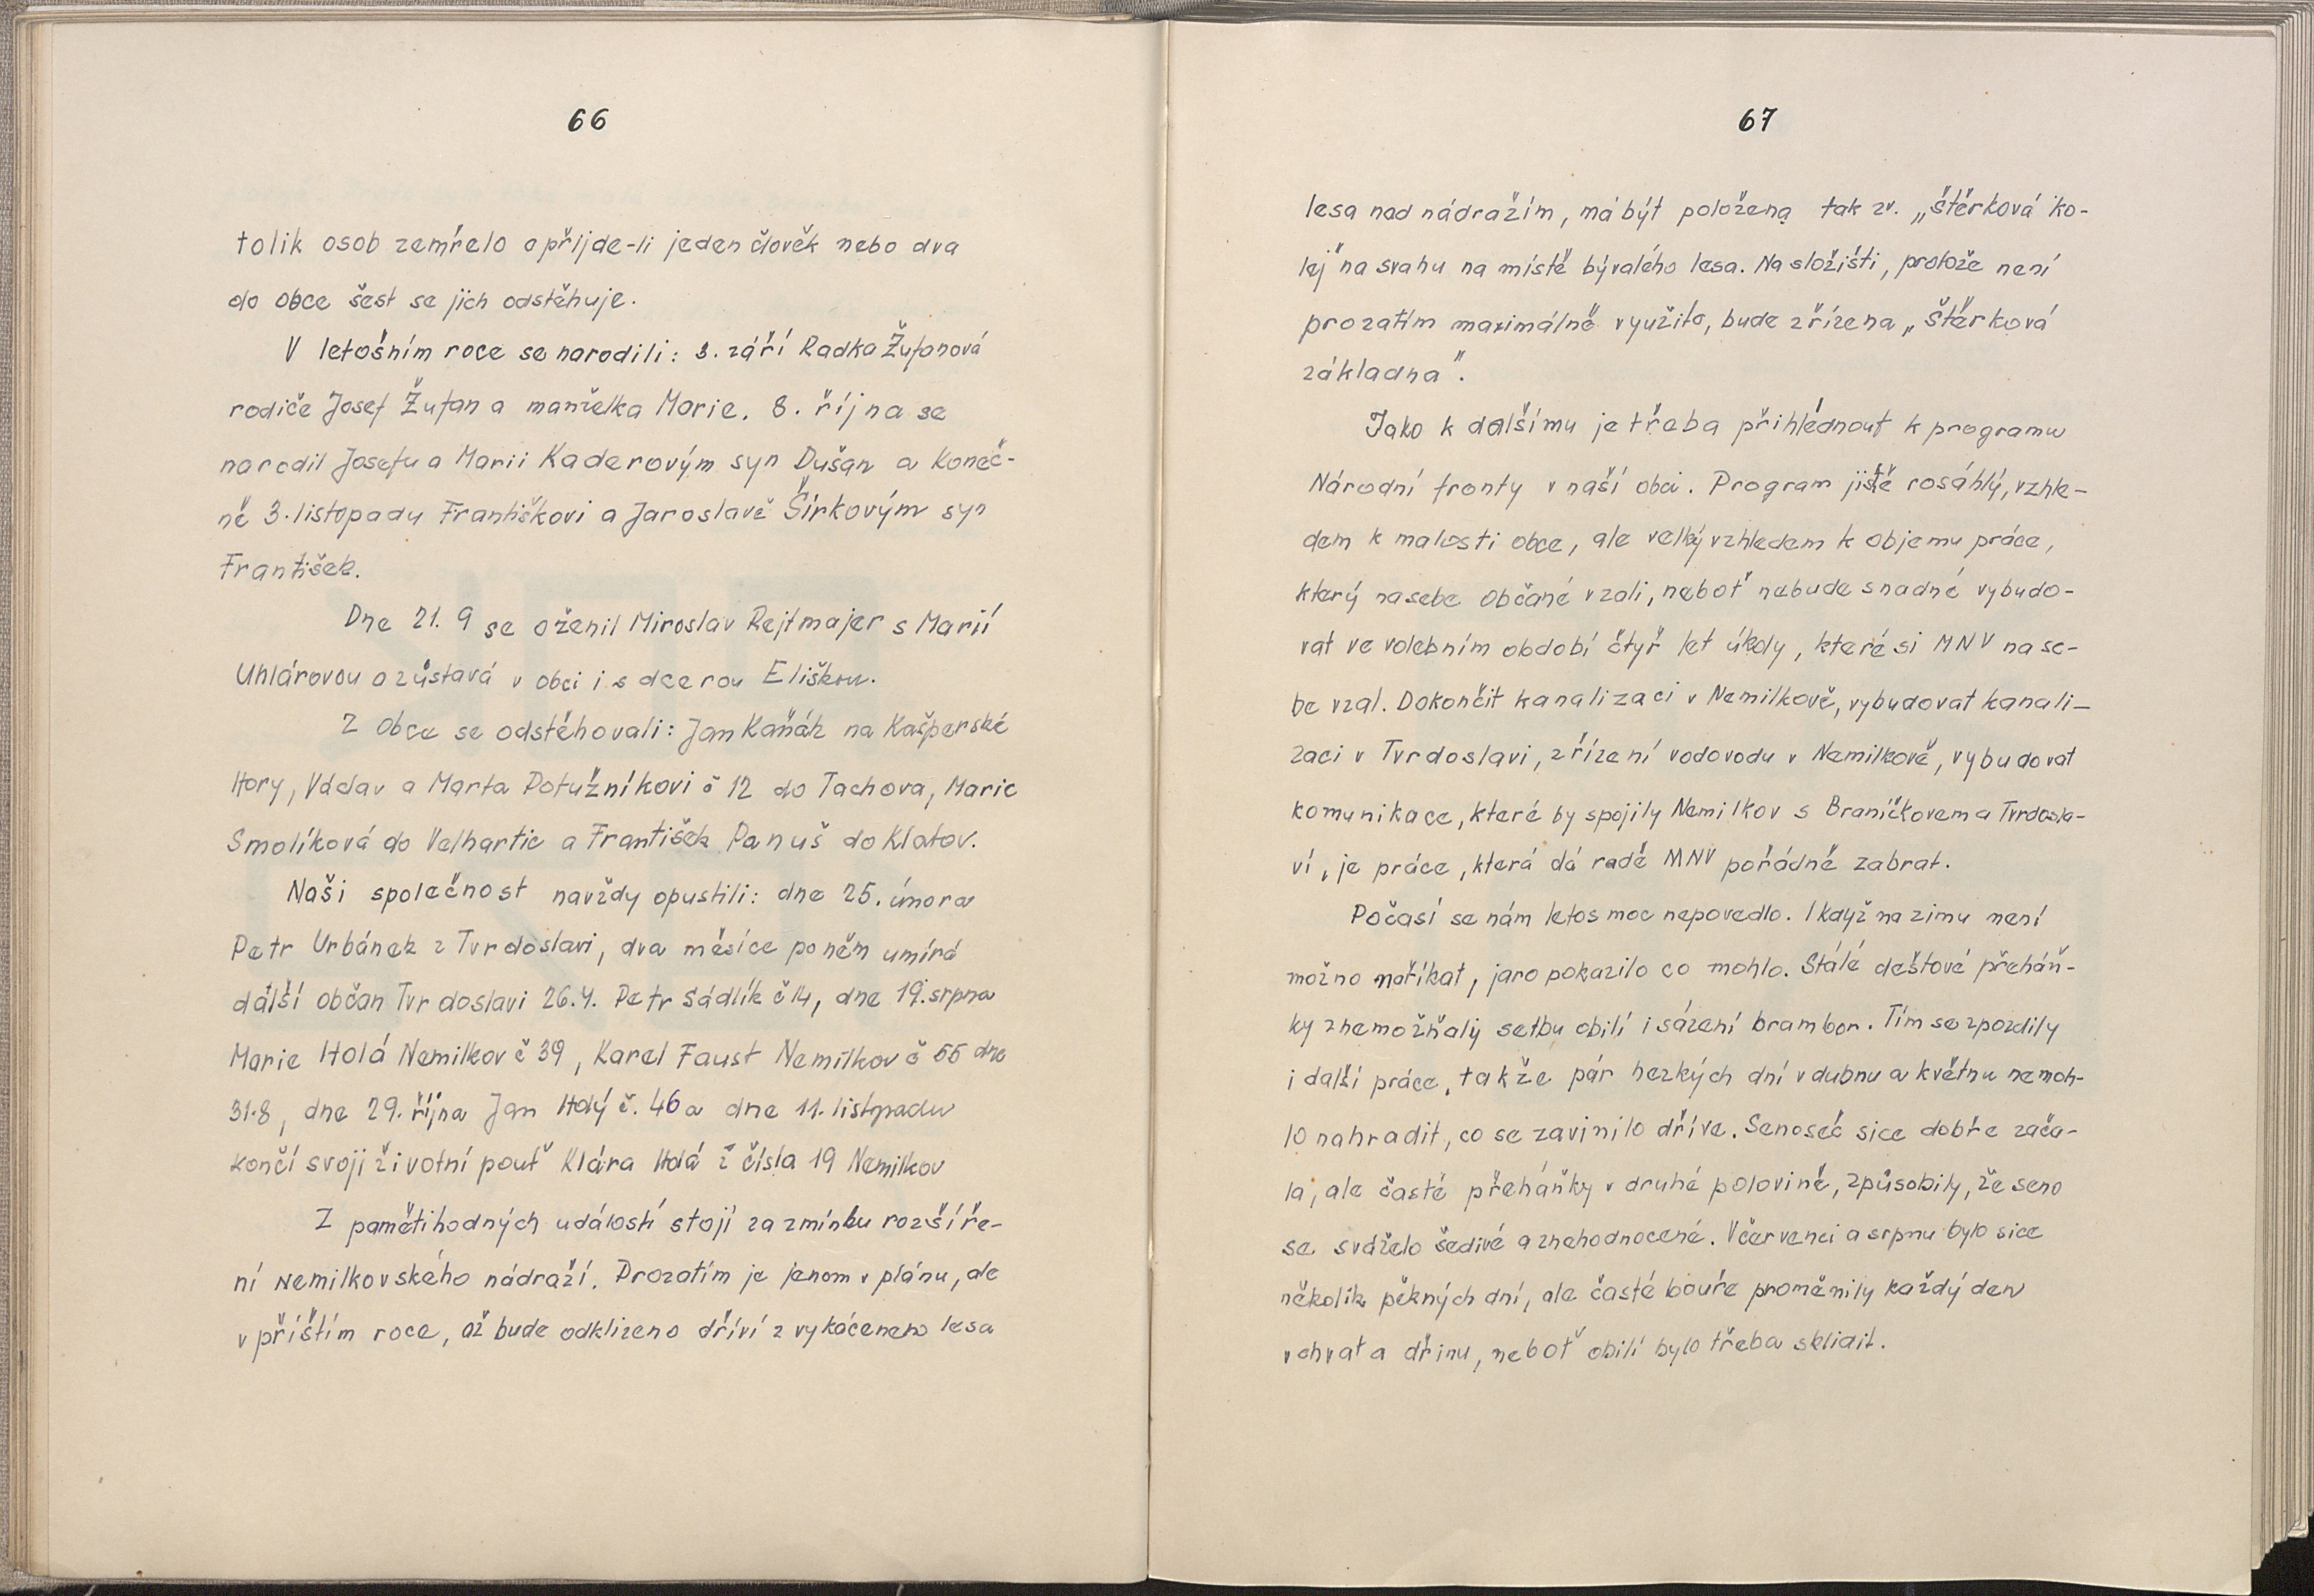 66
tolik osob zemřelo a přijde-li jeden člověk nebo dva
do obce šest se jich odstěhuje.
V letošním roce se narodili: 3. září Radka Žufanová
rodiče Josef Žufan a manželka Marie. 8. října se
narodil Josefu a Marii Kaderovým syn Dušan a koneč-
ně 3. listopadu Františkovi a Jaroslavě Šírkovým syn
František.
Dne 21. 9 se oženil Miroslav Rejtmajer s Marií
Uhlárovou a zůstává v obci i s dcerou Eliškou.
Z obce se odstěhovali: Jan Kaňák na Kašperské
Hory, Václav a Marta Potužníkovi č 12 do Tachova, Marie
Smolíková do Velhartic a František Panuš do Klatov.
Naši společnost navždy opustili: dne 25. února
Petr Urbánek z Tvrdoslavi, dva měsíce po něm umírá
další občan Tvrdoslavi 26.4. Petr Sádlík č 14, dne 19. srpna
Marie Holá Nemilkov č 39, Karel Faust Nemilkov č 55 dne
31.8, dne 29. října Jan Holý č. 46 a dne 11. listopadu
končí svoji životní pouť Klára Holá z čísla 19 Nemilkov
Z pamětihodných událostí stojí za zmínku rozšíře-
ní Nemilkovského nádraží. Prozatím je jenom v plánu, ale
v příštím roce, až bude odklizeno dříví z vykáceneho lesa
67
lesa nad nádražím, má být položena tak zv. „štěrková ko-
lej" na svahu na místě bývalého lesa. Na složišti, protože není
prozatím maximálně využito, bude zřízena „Štěrková
základna".
Jako k dalšímu je třeba přihlédnout k programu
Národní fronty v naší obci. Program jistě rosáhlý, vzhle-
dem k malosti obce, ale velký vzhledem k objemu práce,
který na sebe občané vzali, neboť nebude snadné vybudo-
vat ve volebním období čtyř let úkoly, které si MNV na se-
be vzal. Dokončit kanalizaci v Nemilkově, vybudovat kanali-
zaci v Tvrdoslavi, zřízení vodovodu v Nemilkově, vybudovat
komunikace, které by spojily Nemilkov s Braníčkovem a Tvrdosla-
ví, je práce, která dá radě MNV pořádně zabrat.
Počasí se nám letos moc nepovedlo. I když na zimu není
možno naříkat, jaro pokazilo co mohlo. Stálé dešťové přeháň-
ky znemožňaly setbu obilí i sázení brambor. Tím se zpozdily
i další práce, takže pár hezkých dní v dubnu a květnu nemoh-
lo nahradit, co se zavinilo dříve. Senoseč sice dobře zača-
la, ale časté přeháňky v druhé polovině, způsobily, že seno
se sváželo šedivé a znehodnocené. V červenci a srpnu bylo sice
několik pěkných dní, ale časté bouře proměnily každý den
v chvat a dřinu, neboť obilí bylo třeba sklidit.